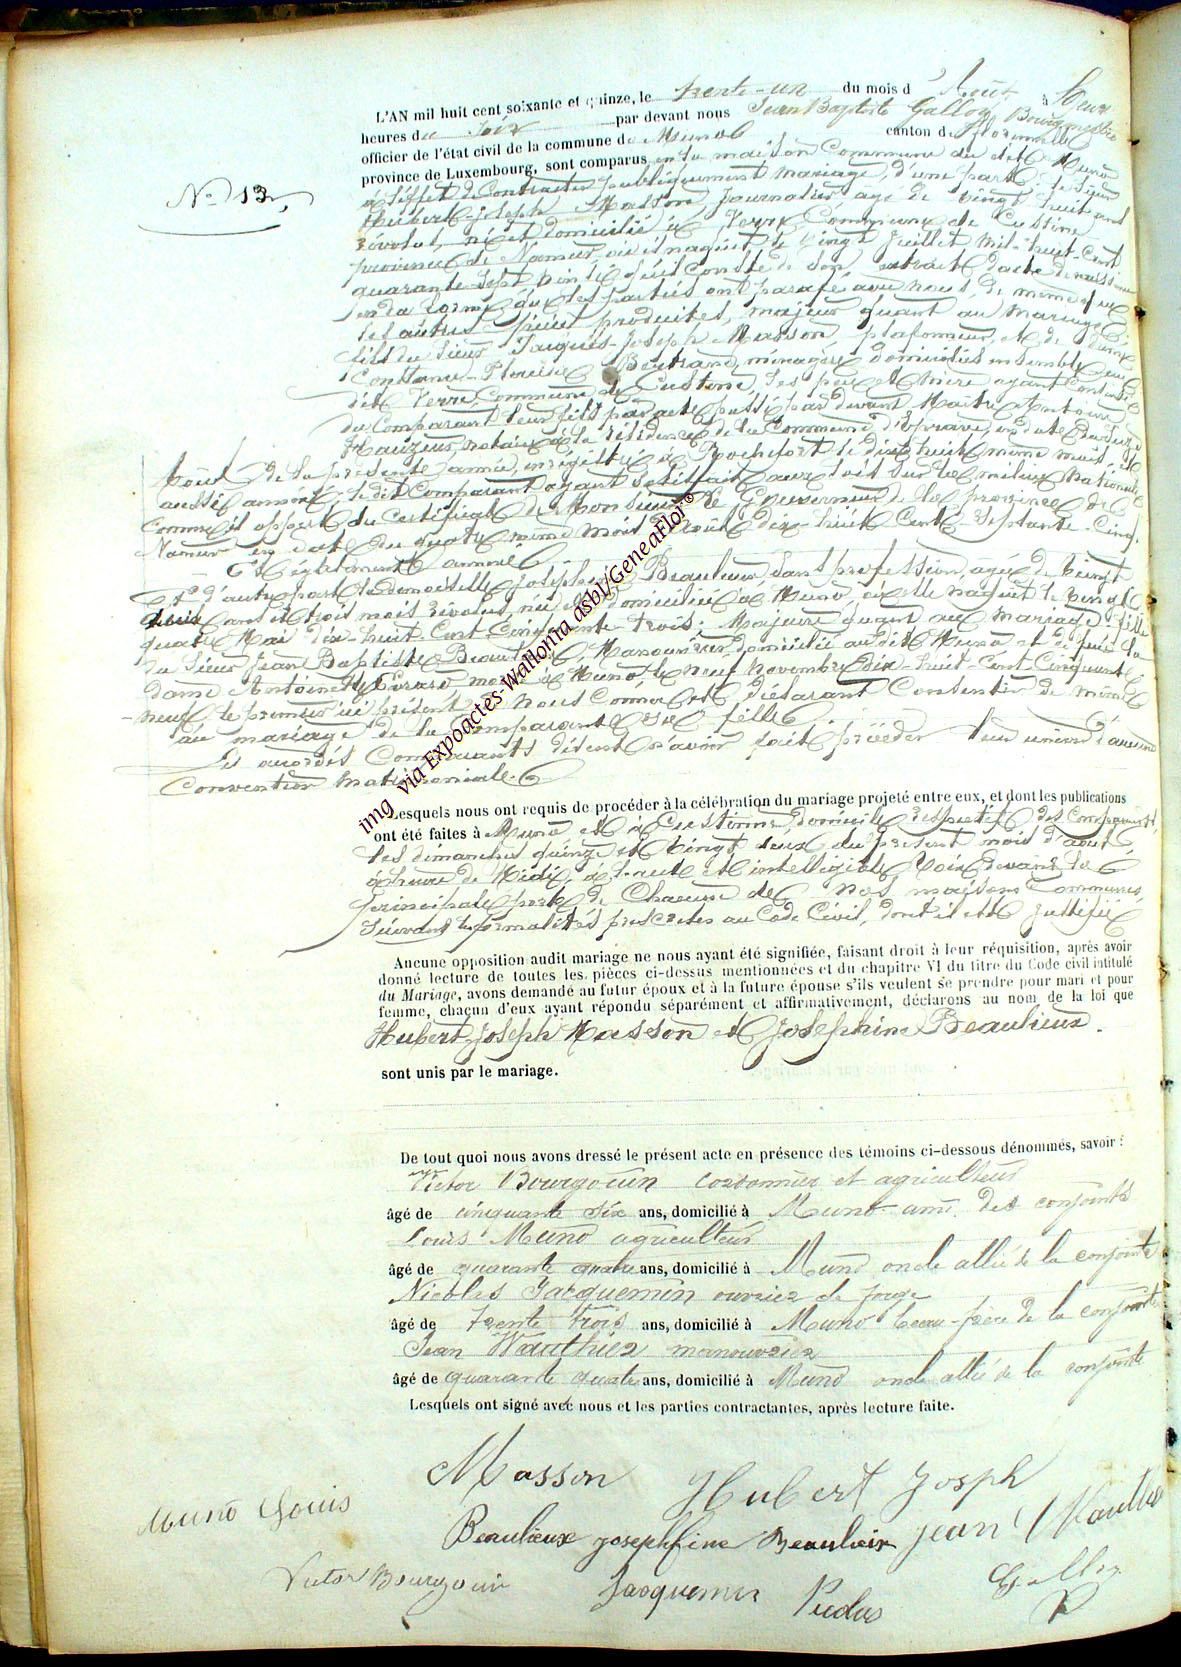 L'AN mil huit cent soixante et quinze, le trente-un du mois d'Août à Neuf
heures du soir par devant nous Jean Baptiste Gallon, Bourgmestre
officier de l'état civil de la commune de Muno canton de Florenville
province de Luxembourg, sont comparus en la maison Commune du dit Muno
N° 13,
à l'effet de contracter publiquement mariage, d'une part: le Sieur
Hubert-Joseph Masson Journalier agé de vingt huit ans
révolus, né et domicilié à Verre Commune de Custine
province de Namur, où il naquit le vingt Juillet mil-huit-cent
quarante-sept ainsi qu'il conste de son extrait d'acte de naissance
en la forme que les parties ont parafé avec nous, de même que
les autres pièces produites, majeur quant au mariage
fils du Sieur Jacques-Joseph Masson, plafonneur, et de Dame
Constance-Thérèse Bertrand, ménagère domiciliés ensemble au
dit Verre Commune de Custine, ses père et mère ayant consenti
du Comparant leur fils par acte passé par devant Maître Antoine
Hauzeur, notaire à la résidence de la Commune d'Eprave, en date du
Août de la présente année, enrégistré à Rochefort le dix huit même mois et
aussi annéxé; le dit Comparant ayant satisfait aux lois sur la milice Nationale
Comme il appert du certificat de Monsieur le Gouverneur de la province de
Namur en date du quatre même mois d'Août dix-huit Cent Septante Cinq.
Et également annéxé
Et d'autre part la demoiselle Joséphine Beaulieux, sans profession, agée de vingt
deux ans et trois mois révolus, née et domiciliée à Muno, où elle naquit le vingt
quatre Mai dix-huit-Cent Cinquante trois; Majeure quant au mariage, fille
du Sieur Jean Baptiste Beaulieux, Manouvrier, domicilié au dit Muno et de feue la
dame Antoinette Evrard, morte à Muno, le neuf Novembre dix-huit-Cent-Cinquante
-neuf, le premier ici présent, à nous Connu et déclarant Consentir de même
au mariage de la Comparante sa fille
Les accordés Comparants disent n'avoir fait précéder leur union d'aucune
Convention Matrimoniale.
Lesquels nous ont requis de procéder à la célébration du mariage projeté entre eux, et dont les publications
ont été faites à Muno et à Custinne, domicile respectif des Comparants,
les dimanches quinze et vingt deux du présent mois d'août
à heure de Midi, à haute et intelligible Voix devant la
principale porte de Chacune de nos maisons Communes
suivant les formalités prescrites au Code Civil, dont il est Justifié
Aucune opposition audit mariage ne nous ayant été signifiée, faisant droit à leur réquisition, après avoir
donné lecture de toutes les pièces ci-dessus mentionnées et du chapitre VI du titre du Code civil intitulé
du Mariage, avons demandé au futur époux et à la future épouse s'ils veulent se prendre pour mari et pour
femme, chacun d'eux ayant répondu séparément et affirmativement, déclarons au nom de la loi que
Hubert-Joseph Masson et Joséphine Beaulieux.
sont unis par le mariage.
De tout quoi nous avons dressé le présent acte en présence des témoins ci-dessous dénommés, savoir :
Victor Bourgouin cordonnier et agriculteur
âgé de cinquante six ans, domicilié à Muno ami des conjoints
Louis Muno agriculteur
âgé de quarante quatre ans, domicilié à Muno oncle allié de la conjointe
Nicolas Jacquemin ouvrier de forge
âgé de trente trois ans, domicilié à Muno beau-frère de la conjointe
Jean Wauthier manouvrier
âgé de quarante quatre ans, domicilié à Muno oncle allié de la conjointe
Lesquels ont signé avec nous et les parties contractantes, après lecture faite.
Masson Hubert Joseph
Muno Louis
Beaulieux Joséphine Beaulieux Jean Wauthie
Victor Bourgouin Jacquemin Nicolas Gallon
img via Expoactes-Wallonia asbl/GeneaFloi©